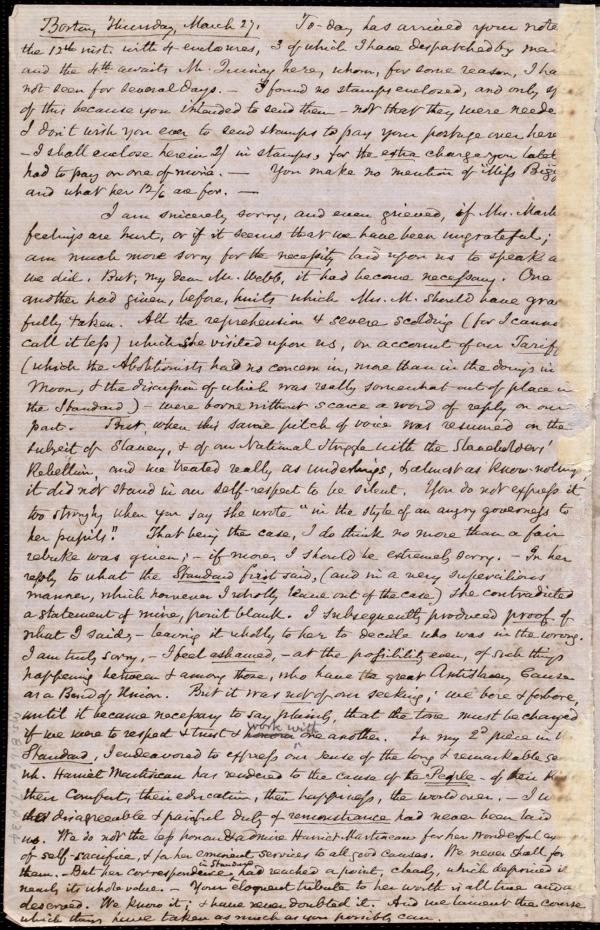 Boston, Thursday, March 27. To-day has arrived your note
the 12th inst. with 4 enclosures, 3 of which I have despatched by mail
and the 4th awaits Mr. Quincy here, whom, for some reason, I ha
not seen for several days. — I found no stamps enclosed, and only sp
of this because you intended to send them - not that they were neede
I don't wish you ever to send stamps to pay your postage over here
- I shall enclose herein 2/ in stamps, for the extra charge you late
had to pay on one of mine. — You make no mention of "Miss Big
and what her 12/6 are for. —
I am sincerely sorry, and even grieved, if Mrs. Mart
feelings are hurt, or if it seems that we have been ungrateful;
am much more sorry for the necessity laid upon us to speak a
we did. But, my dear Mr. Webb, it had become necessary. One
another had given, before, hints which Mrs. M. should have gra
fully taken. All the reprehension & severe scolding (for I canno
call it less) which she visited upon us, on account of our Tariff
(which the Abolitionists had no concern in, more than in the doings in
Moon, & the discussion of which was really somewhat out of place in
the Standard) - were borne without scarce a word of reply on our
part. But, when this same pitch of voice was resumed on the
subject of Slavery, & of our National Struggle with the Slaveholders'
Rebellion, and we treated really as underlings, & almost as know-nothing,
it did not stand in our self-respect to be silent. You do not express it
too strongly when you say she wrote "in the style of an angry governess to
her pupils." That being the case, I do think no more than a fair
rebuke was given; - if more, I should be extremely sorry. - In her
reply to what the Standard first said, (and in a very supercilious
manner, which however I wholly leave out of the case) she contradicted
a statement of mine, point blank. I subsequently produced proof of
what I said, - leaving it wholly to her to decide who was in the wrong.
I am truly sorry, - I feel ashamed, - at the possibility even, of such things
happening between & among those, who have the great Antislavery Cause
as a Bond of Union. But it was not of our seeking; we bore & forbore,
until it became necessary to say plainly, that the tone must be changed
if we were to respect & trust & work with one another. In my 2d piece in
Standard, I endeavored to express our sense of the long & remarkable se
wh. Harriet Martineau has rendered to the cause of the People - of their
their Comfort, their education, their happiness, the world over. - I w
that disagreeable & painful duty of remonstrance had never been laid
us. We do not the less honor & admire Harriet Martineau for her wonderful
of self-sacrifice, & for her eminent services to all good causes. We never shall for
them. - But her correspondence in Standard had reached a point, clearly, which deprived it
nearly its whole value. - Your eloquent tribute to her worth is all true and
deserved. We know it; & have never doubted it. And we lament the course
which things have taken as much as you possibly can.